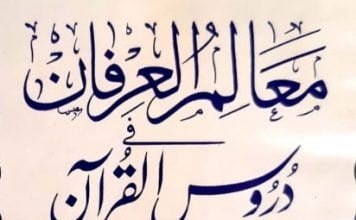 مَعَالِمُ الْعِرْفَان
فِى
دُرُوس الْقُرْآن